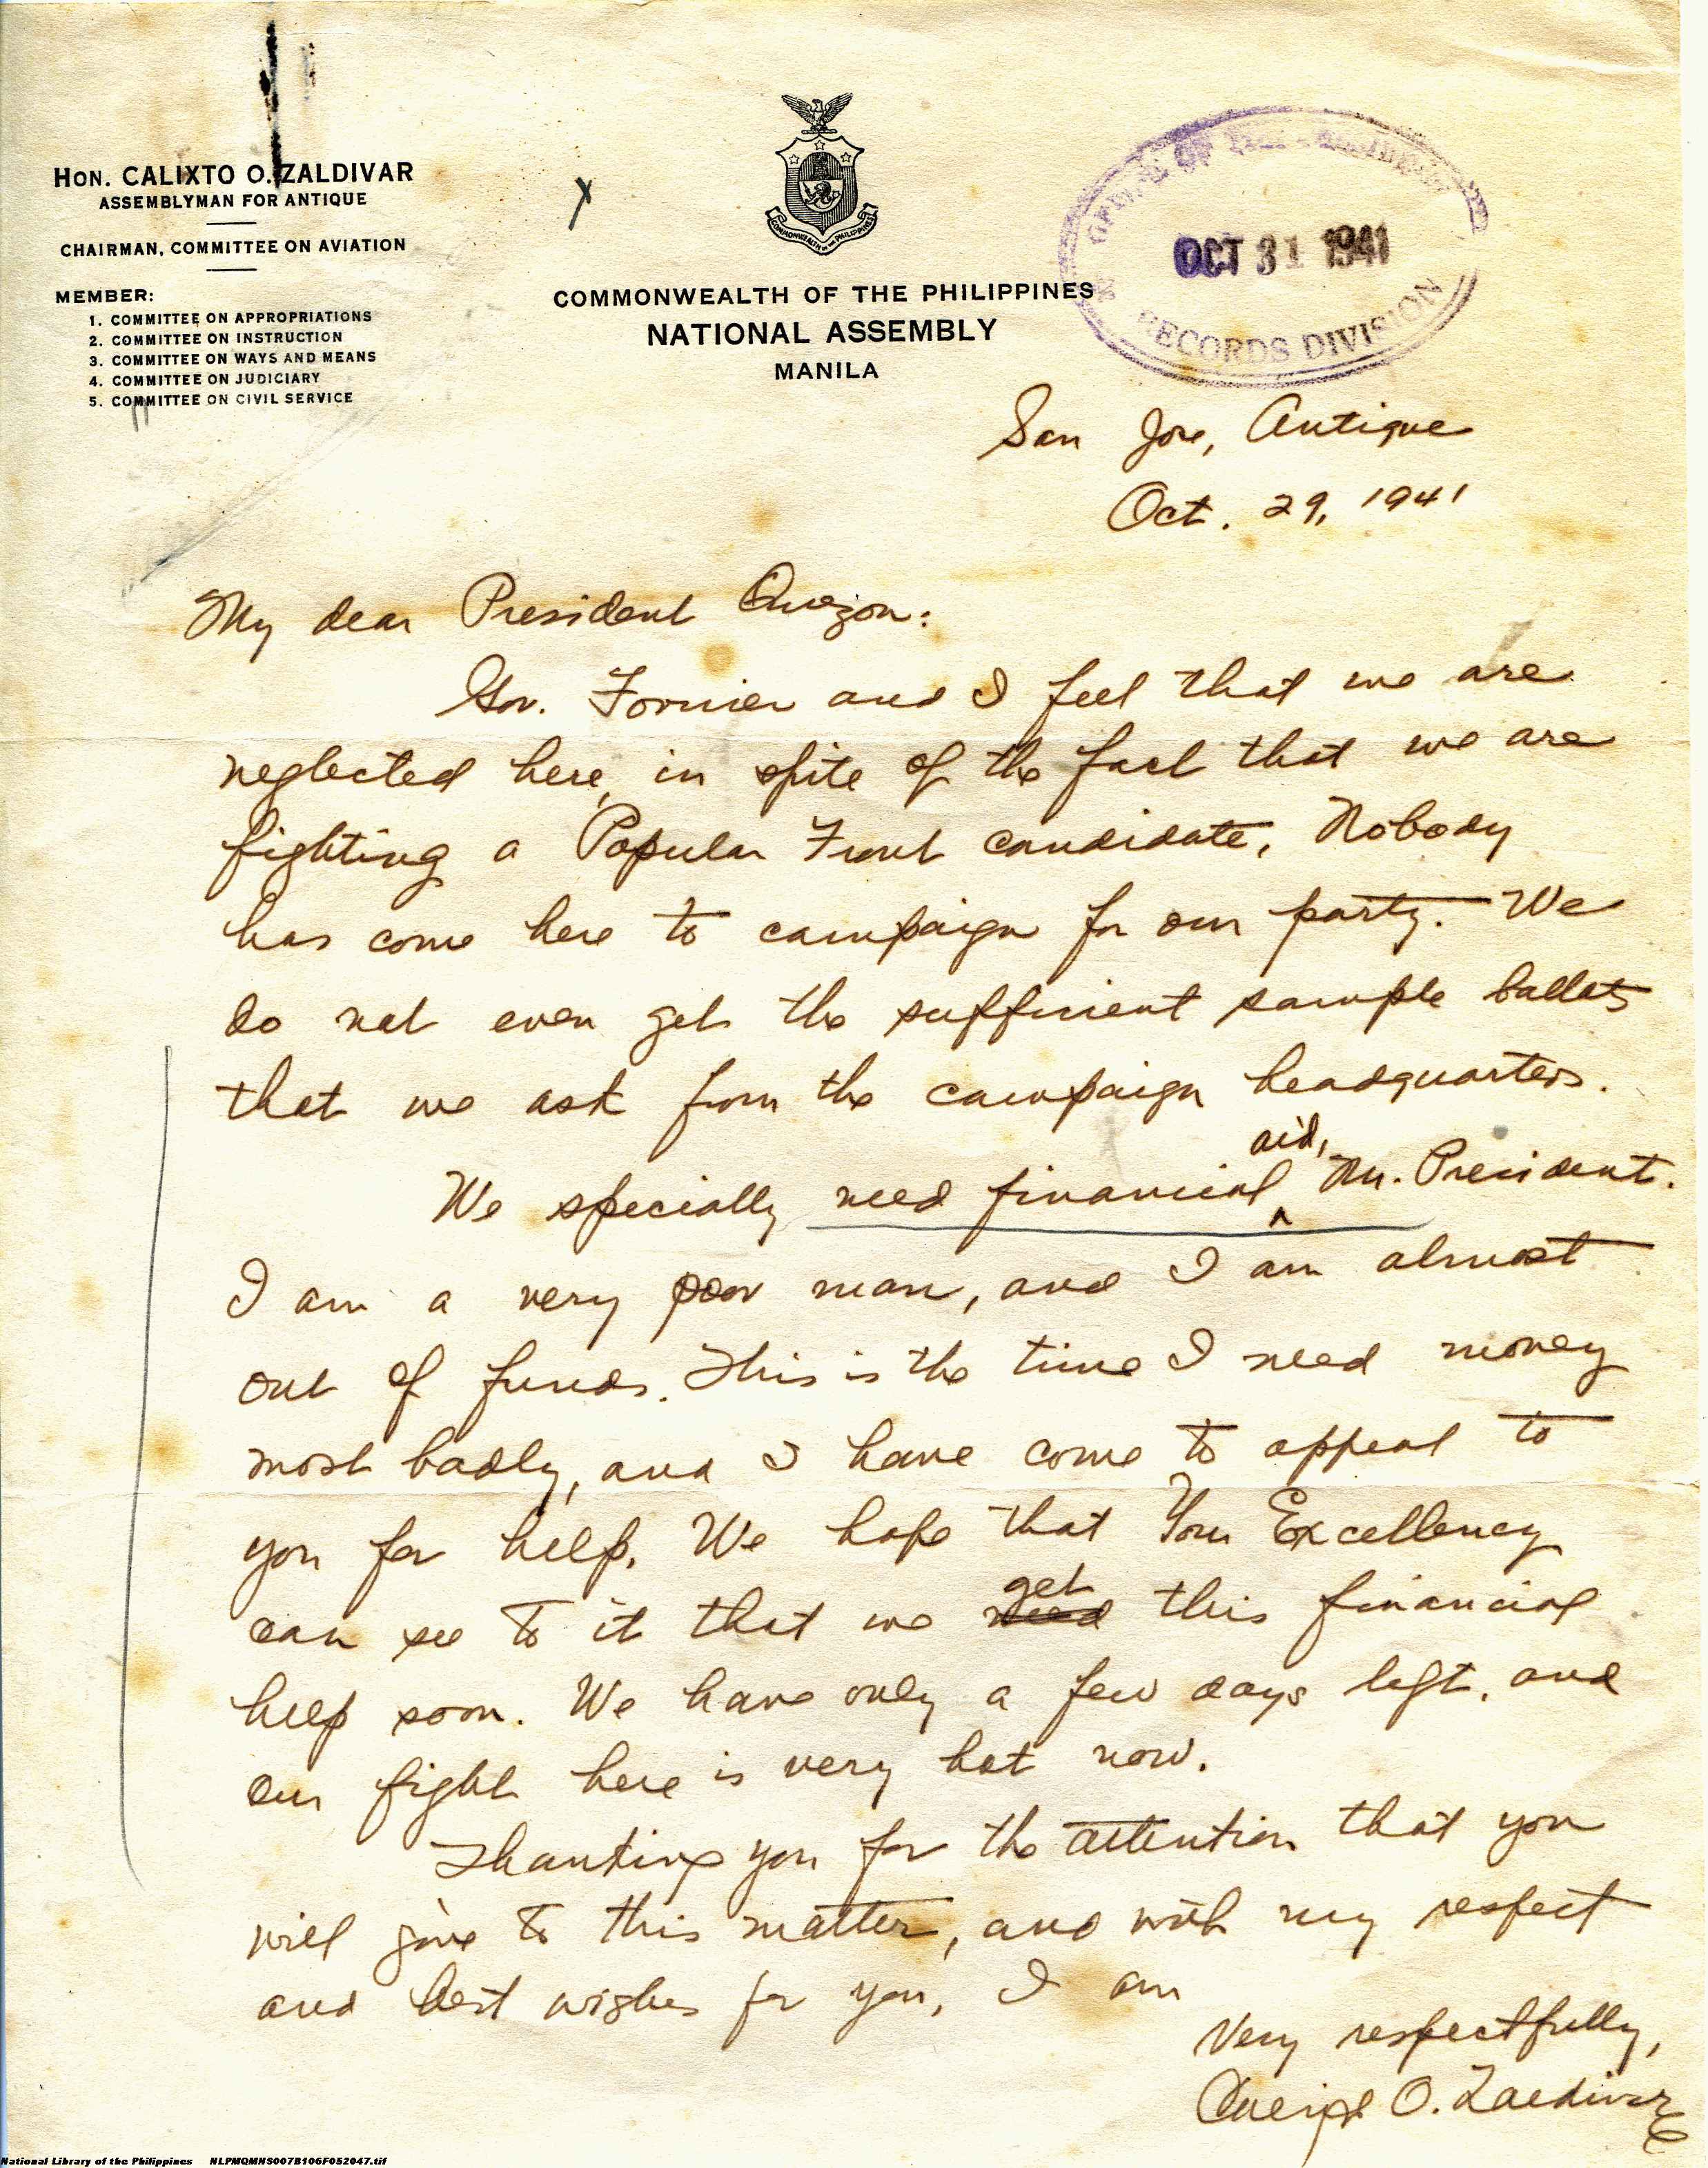 HON. CALIXTO O. ZALDIVAR
ASSEMBLYMAN FOR ANTIQUE
CHAIRMAN, COMMITTEE ON AVIATION
MEMBER:
1. COMMITTEE ON APPROPRIATIONS
2. COMMITTEE ON INSTRUCTION
3. COMMITTEE ON WAYS AND MEANS
4. COMMITTEE ON JUDICIARY
5. COMMITTEE ON CIVIL SERVICE
COMMONWEALTH OF THE PHILIPPINES
COMMONWEALTH OF THE PHILIPPINES
NATIONAL ASSEMBLY
MANILA
OFFICE OF THE
OCT 31 1941
RECORDS DIVISION
San Jose, Antique
Oct. 29, 1941
My dear President Quezon:
Gov. Fornier and I feel that we are
neglected here, in spite of the fact that we are
fighting a Popular Front candidate. Nobody
has come here to campaign for our party. We
do not even get the sufficient sample ballots
that we ask from the campaign headquarters.
We specially need financial aid, Mr. President.
I am a very poor man, and I am almost
out of funds. This is the time I need money
most badly, and I have come to appeal to
you for help. We hope that Your Excellency
can see to it that we need get this financial
help soon. We have only a few days left, and
our fight here is very hot now.
Thanking you for the attention that you
will give to this matter, and with my respect
and best wishes for you, I am
Very respectfully,
Calixto O. Zaldivar
National Library of the Philippines NLPMQMNS007B106F052047.tif